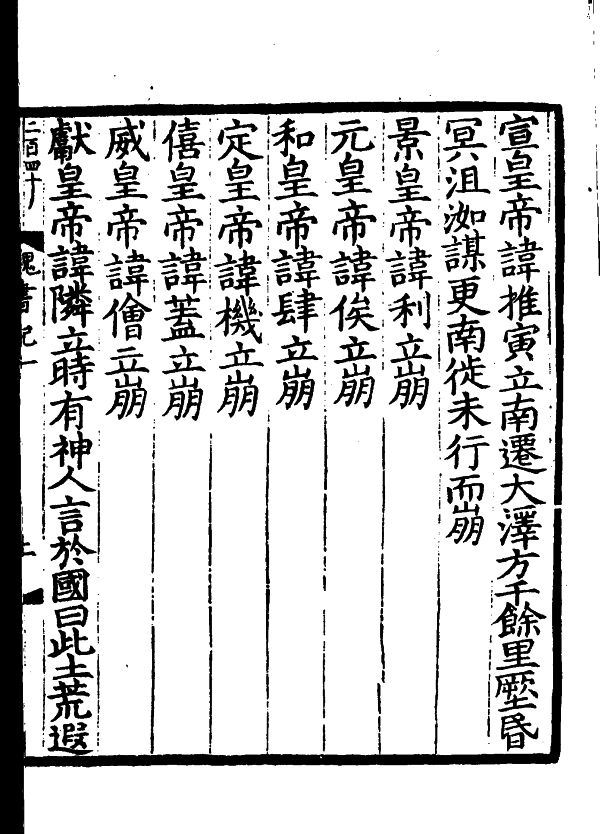 宣皇帝諱推寅立南遷大澤方千餘里厥土昏
冥沮洳謀更南徙未行而崩
景皇帝諱利立崩
元皇帝諱俟立崩
和皇帝諱肆立崩
定皇帝諱機立崩
僖皇帝諱蓋立崩
威皇帝諱儈立崩
獻皇帝諱隣立時有神人言於國曰此土荒遐
二百四十
魏書紀一
二